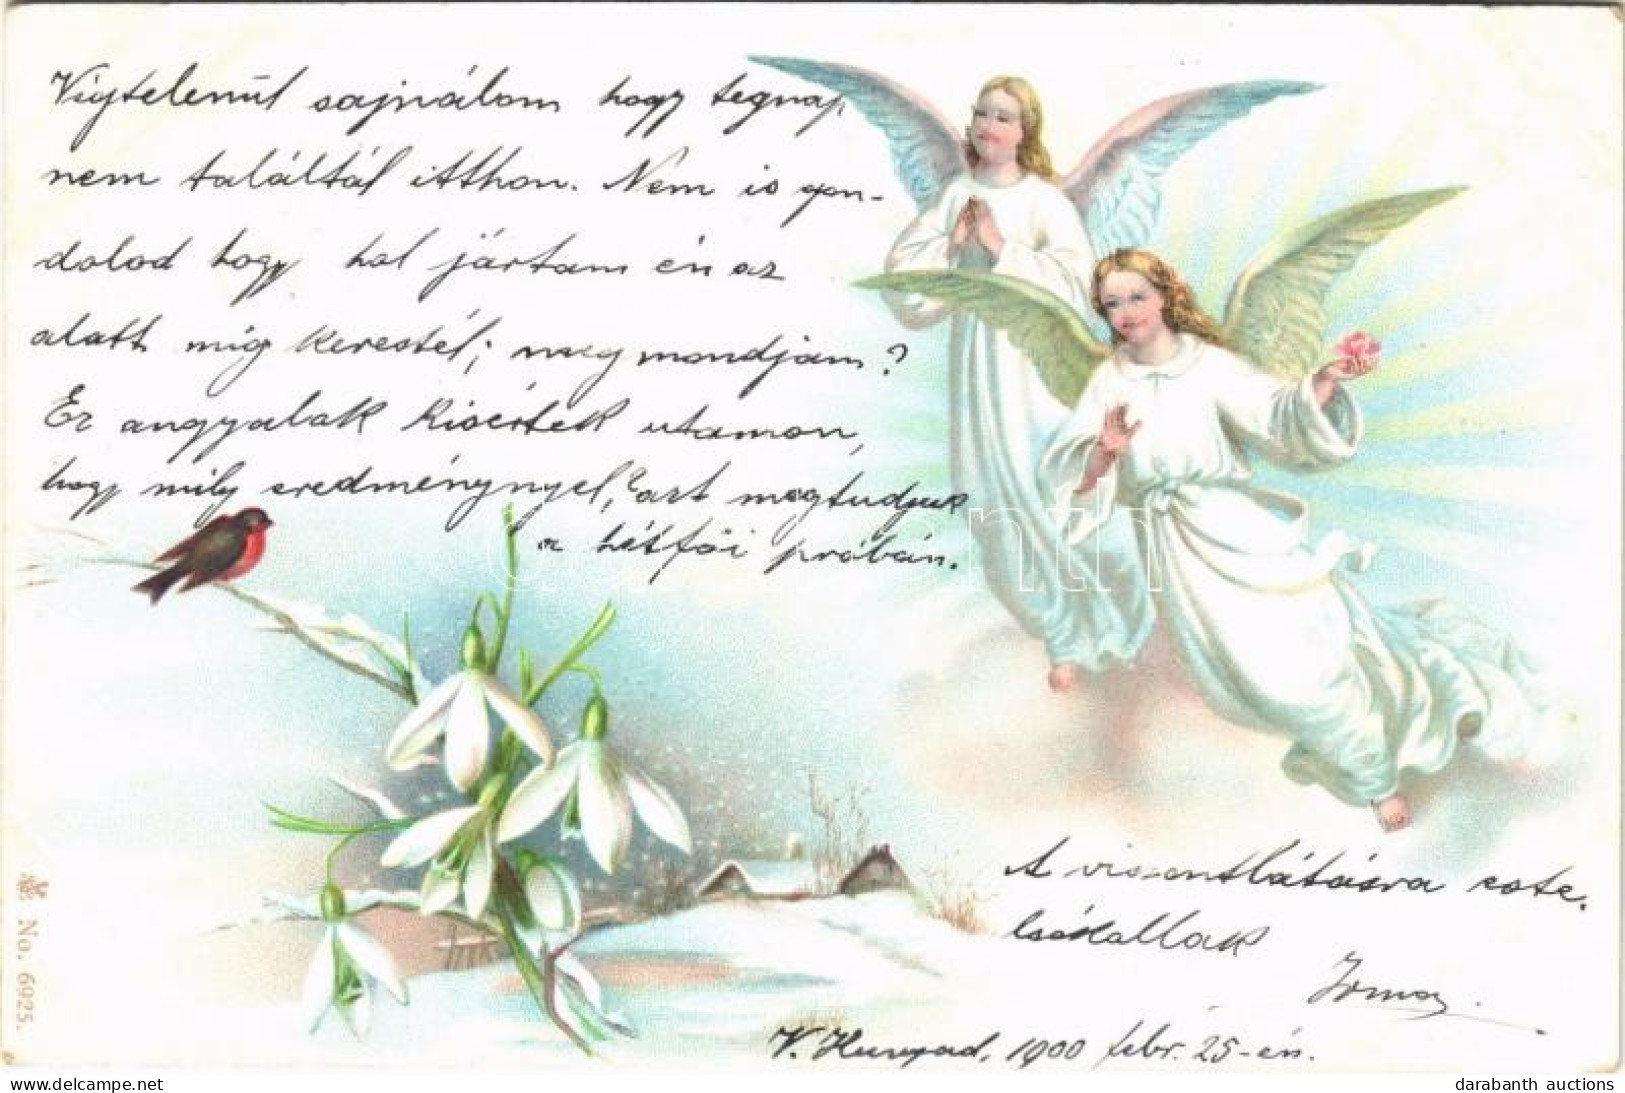 Végtelenül sajnálom hogy tegnap
nem találtál itthon. Nem is gon-
dolod hogy hol jártam én az
alatt míg kerestél; meg mondjam?
Ez angyalak kisértek utamon,
hogy mily eredménynyel, azt megtudjuk
a hétfői próbán.
A viszontlátásra este.
Csókollak
Irma.
V. Hunyad, 1900 febr. 25-én.
No. 6925.
darabanth
darabanth auctions